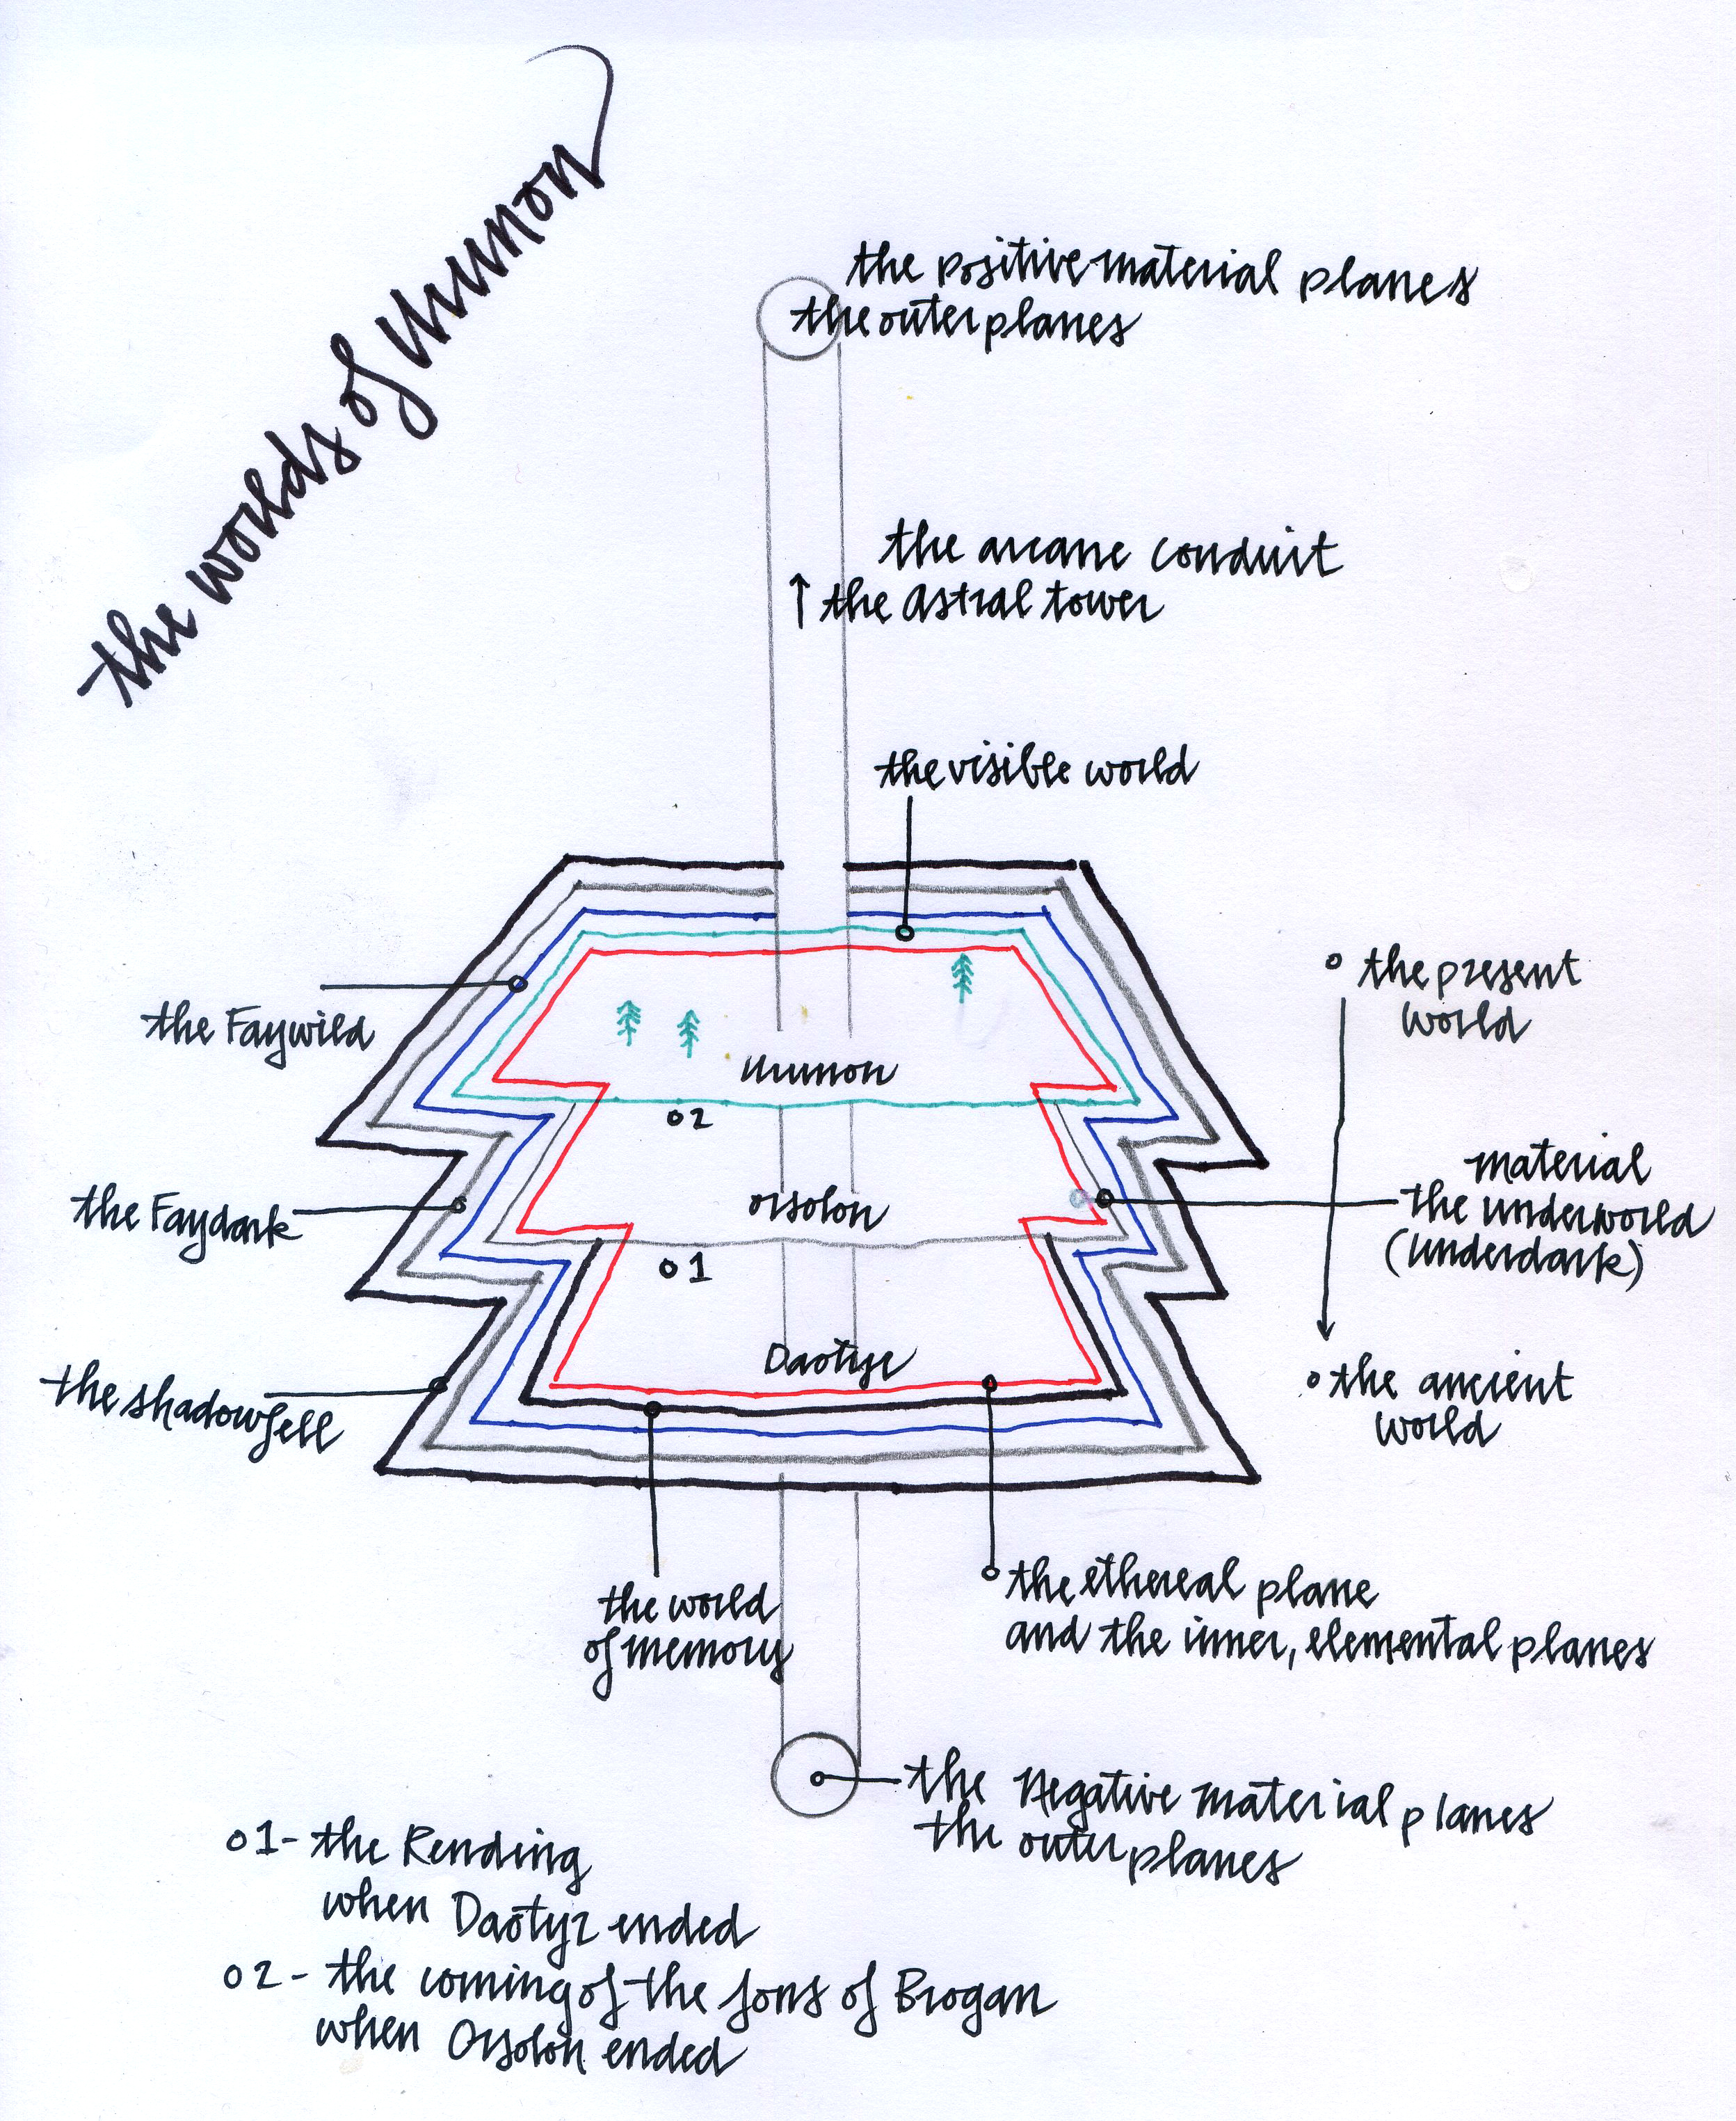 the worlds of Urumon
the positive material planes
the outer planes
the arcane conduit
↑ the Astral tower
the visible world
the Faywild
the present
world
Urumon
02
material
the underworld
(underdark)
the Faydark
Orsolon
01
Daotyr
the shadowfell
the ancient
world
the world
of memory
the ethereal plane
and the inner, elemental planes
the Negative material planes
the outer planes
01- the Rending
when Daotyr ended
02- the coming of the sons of Brogan
when Orsolon ended